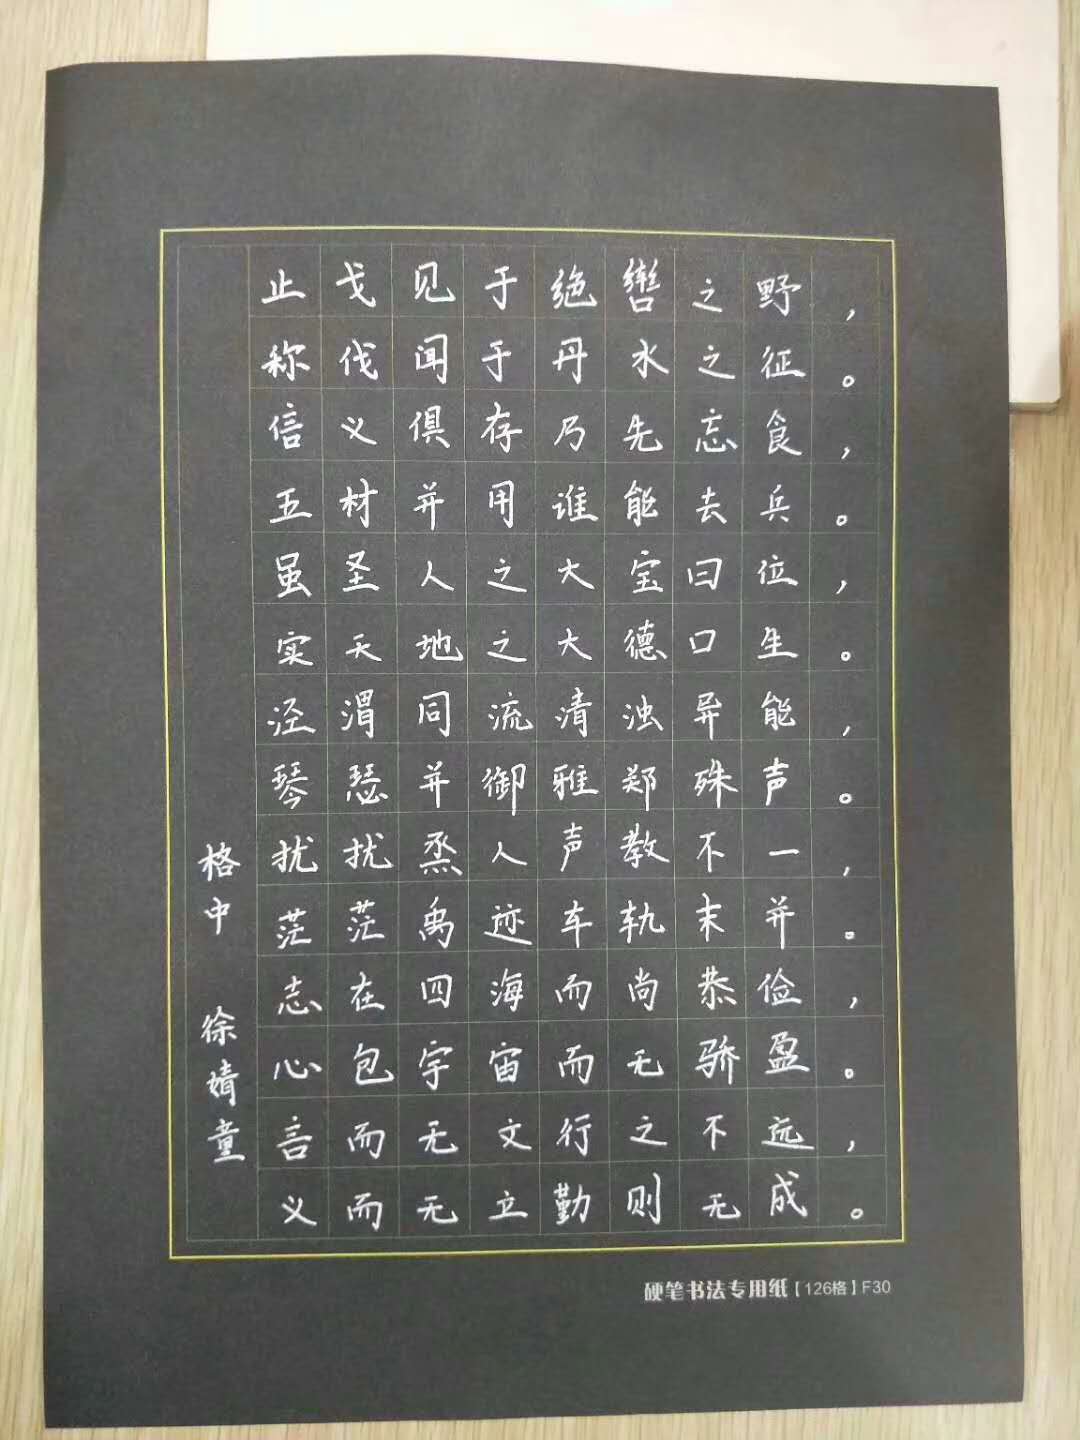 止戈见于绝辔之野，
称伐闻于丹水之征。
信义俱存乃先忘食，
五材并用谁能去兵。
虽圣人之大宝曰位，
实天地之大德口生。
泾渭同流清浊异能，
琴瑟并御雅郑殊声。
扰扰烝人声教不一，
茫茫禹迹车轨末并。
志在四海而尚恭俭，
心包宇宙而无骄盈。
言而无文行之不远，
义而无立勤则无成。
格中 徐婧童
硬笔书法专用纸【126格】F30